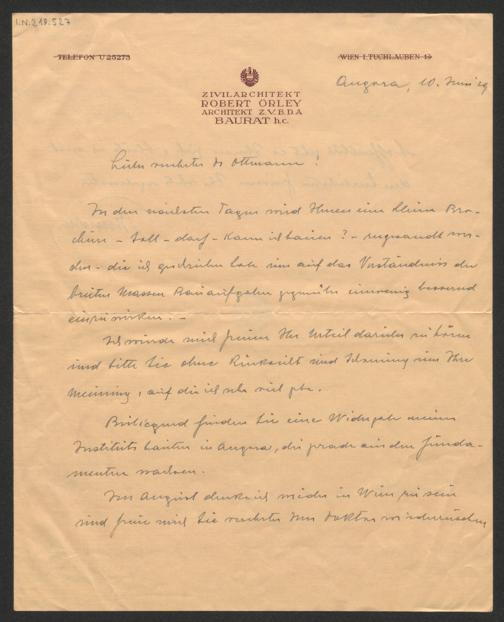 I.N. 218.527
TELEFON U 25273
WIEN I. TUCHLAUBEN
ZIVILARCHITEKT
ROBERT ÖRLEY
ARCHITEKT Z.V.B.D.A
BAURAT h.c.
Angora, 10. Juni 29
Lieber verehrter Dr Ottmann!
In den nächsten Tagen wird Ihnen eine kleine Bro-
chure – Soll – darf – kann ich bauen? – zugesandt wer-
den – die ich geschrieben habe um auf das Verständniss der
breiten Massen Bauaufgaben gegenüber einwenig bessernd
einzuwirken. –
Ich würde mich freuen Ihr Urteil darüber zu hören
und bitte Sie ohne Rücksicht und Schonung um Ihre
Meinung, auf die ich sehr viel gebe.
Beiliegend finden Sie eine Widergabe meiner
Instituts bauten in Angora, die grade aus den Funda-
menten wachsen.
Im August denke ich wieder in Wien zu sein
und freue mich Sie verehrter Herr Doktor wiederzusehen